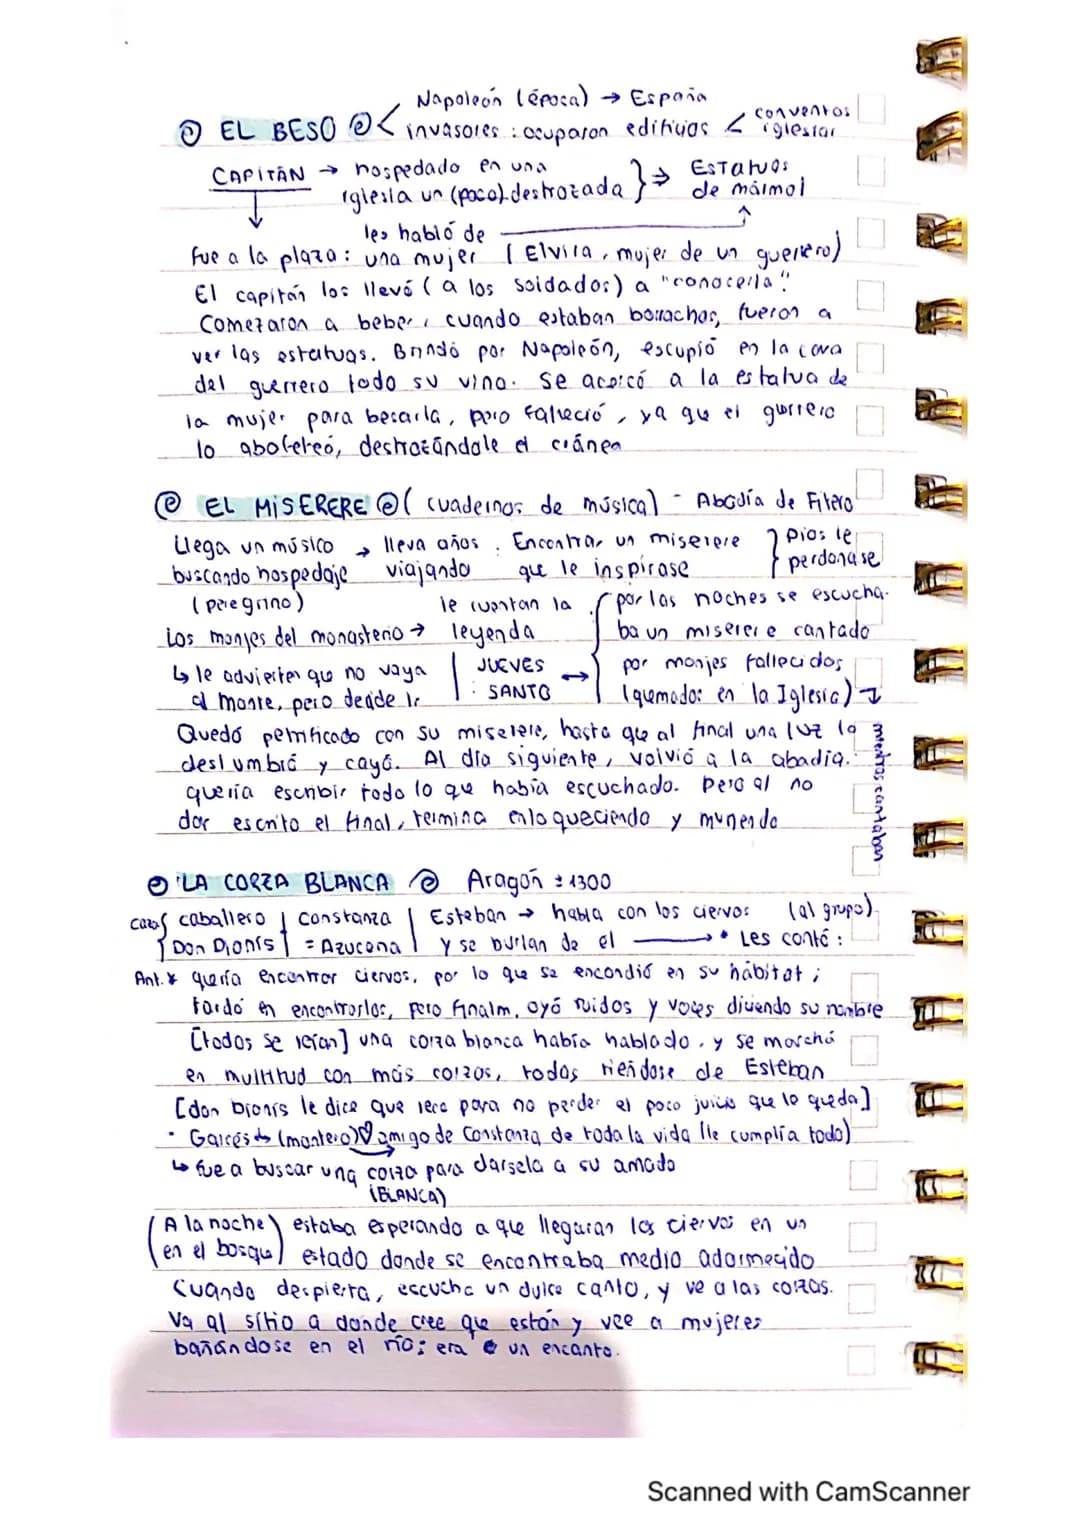 Napoleón (época) → España
EL BESO < invasores : ocuparon edificios < conventos iglesias
CAPITÁN → hospedado en una iglesia un (poco) destrozada } ⇒ Estatuas de mármol
les habló de
Fue a la plaza: una mujer (Elvira, mujer de un guerrero)
El capitán los llevó (a los soldados) a "conocerla".
Comezaron a beber, cuando estaban borrachos, fueron a
ver las estatuas. Brindó por Napoleón, escupió en la cara
del guerrero todo su vino. Se acercó a la estatua de
la mujer para besarla, pero falleció, ya que el guerrero
lo abofeteó, destrozándole el cráneo
EL MISERERE (cuadernos de música) - Abadía de Fitero
Llega un músico → lleva años . Encontrar un miserere } Dios le
buscando hospedaje viajando que le inspirase perdonase
(peregrino) le cuentan la { por las noches se escucha-
Los monjes del monasterio → leyenda ba un miserere cantado
↳ le advierten que no vaya | JUEVES ↔ por monjes fallecidos
al monte, pero decide ir | : SANTO (quemados en la Iglesia) ↓
mientras cantaban
Quedó petrificado con su miserere, hasta que al final una luz lo
deslumbró y cayó. Al día siguiente, volvió a la abadía.
quería escribir todo lo que había escuchado. Pero al no
dar escrito el final, termina enloqueciendo y muriendo
LA CORZA BLANCA Aragón ± 1300
caballero | Constanza | Esteban → habla con los ciervos (al grupo)
Don Dionís | = Azucena | y se burlan de el → • Les contó :
Ant. * quería encontrar ciervos, por lo que se encondió en su hábitat ;
tardó en encontrarlos, pero finalm. oyó ruidos y voces diciendo su nombre
[todos se reían] una corza blanca había hablado. y se marchó
en multitud con más corzos, todos riéndose de Esteban
[don Dionís le dice que rece para no perder el poco juicio que lo queda]
• Garcés (montero) ♡ amigo de Constanza de toda la vida (le cumplía todo)
↳ fue a buscar una corza para darsela a su amada
(BLANCA)
(A la noche estaba esperando a que llegaran los ciervos en un
en el bosque) estado donde se encontraba medio adormecido
Cuando despierta, escucha un dulce canto, y ve a las corzas.
Va al sitio a donde cree que están y vee a mujeres
bañándose en el río; era un encanto.
Scanned with CamScanner